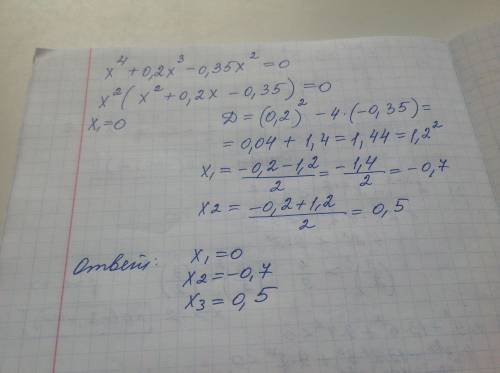 x⁴ + 0,2x³ - 0,35x² = 0
x²(x² + 0,2x - 0,35) = 0
x₁ = 0
D = (0,2)² - 4·(-0,35) =
= 0,04 + 1,4 = 1,44 = 1,2²
x₁ = (-0,2-1,2)/2 = -1,4/2 = -0,7
x2 = (-0,2+1,2)/2 = 0,5
Ответ: x₁ = 0
x2 = -0,7
x3 = 0,5